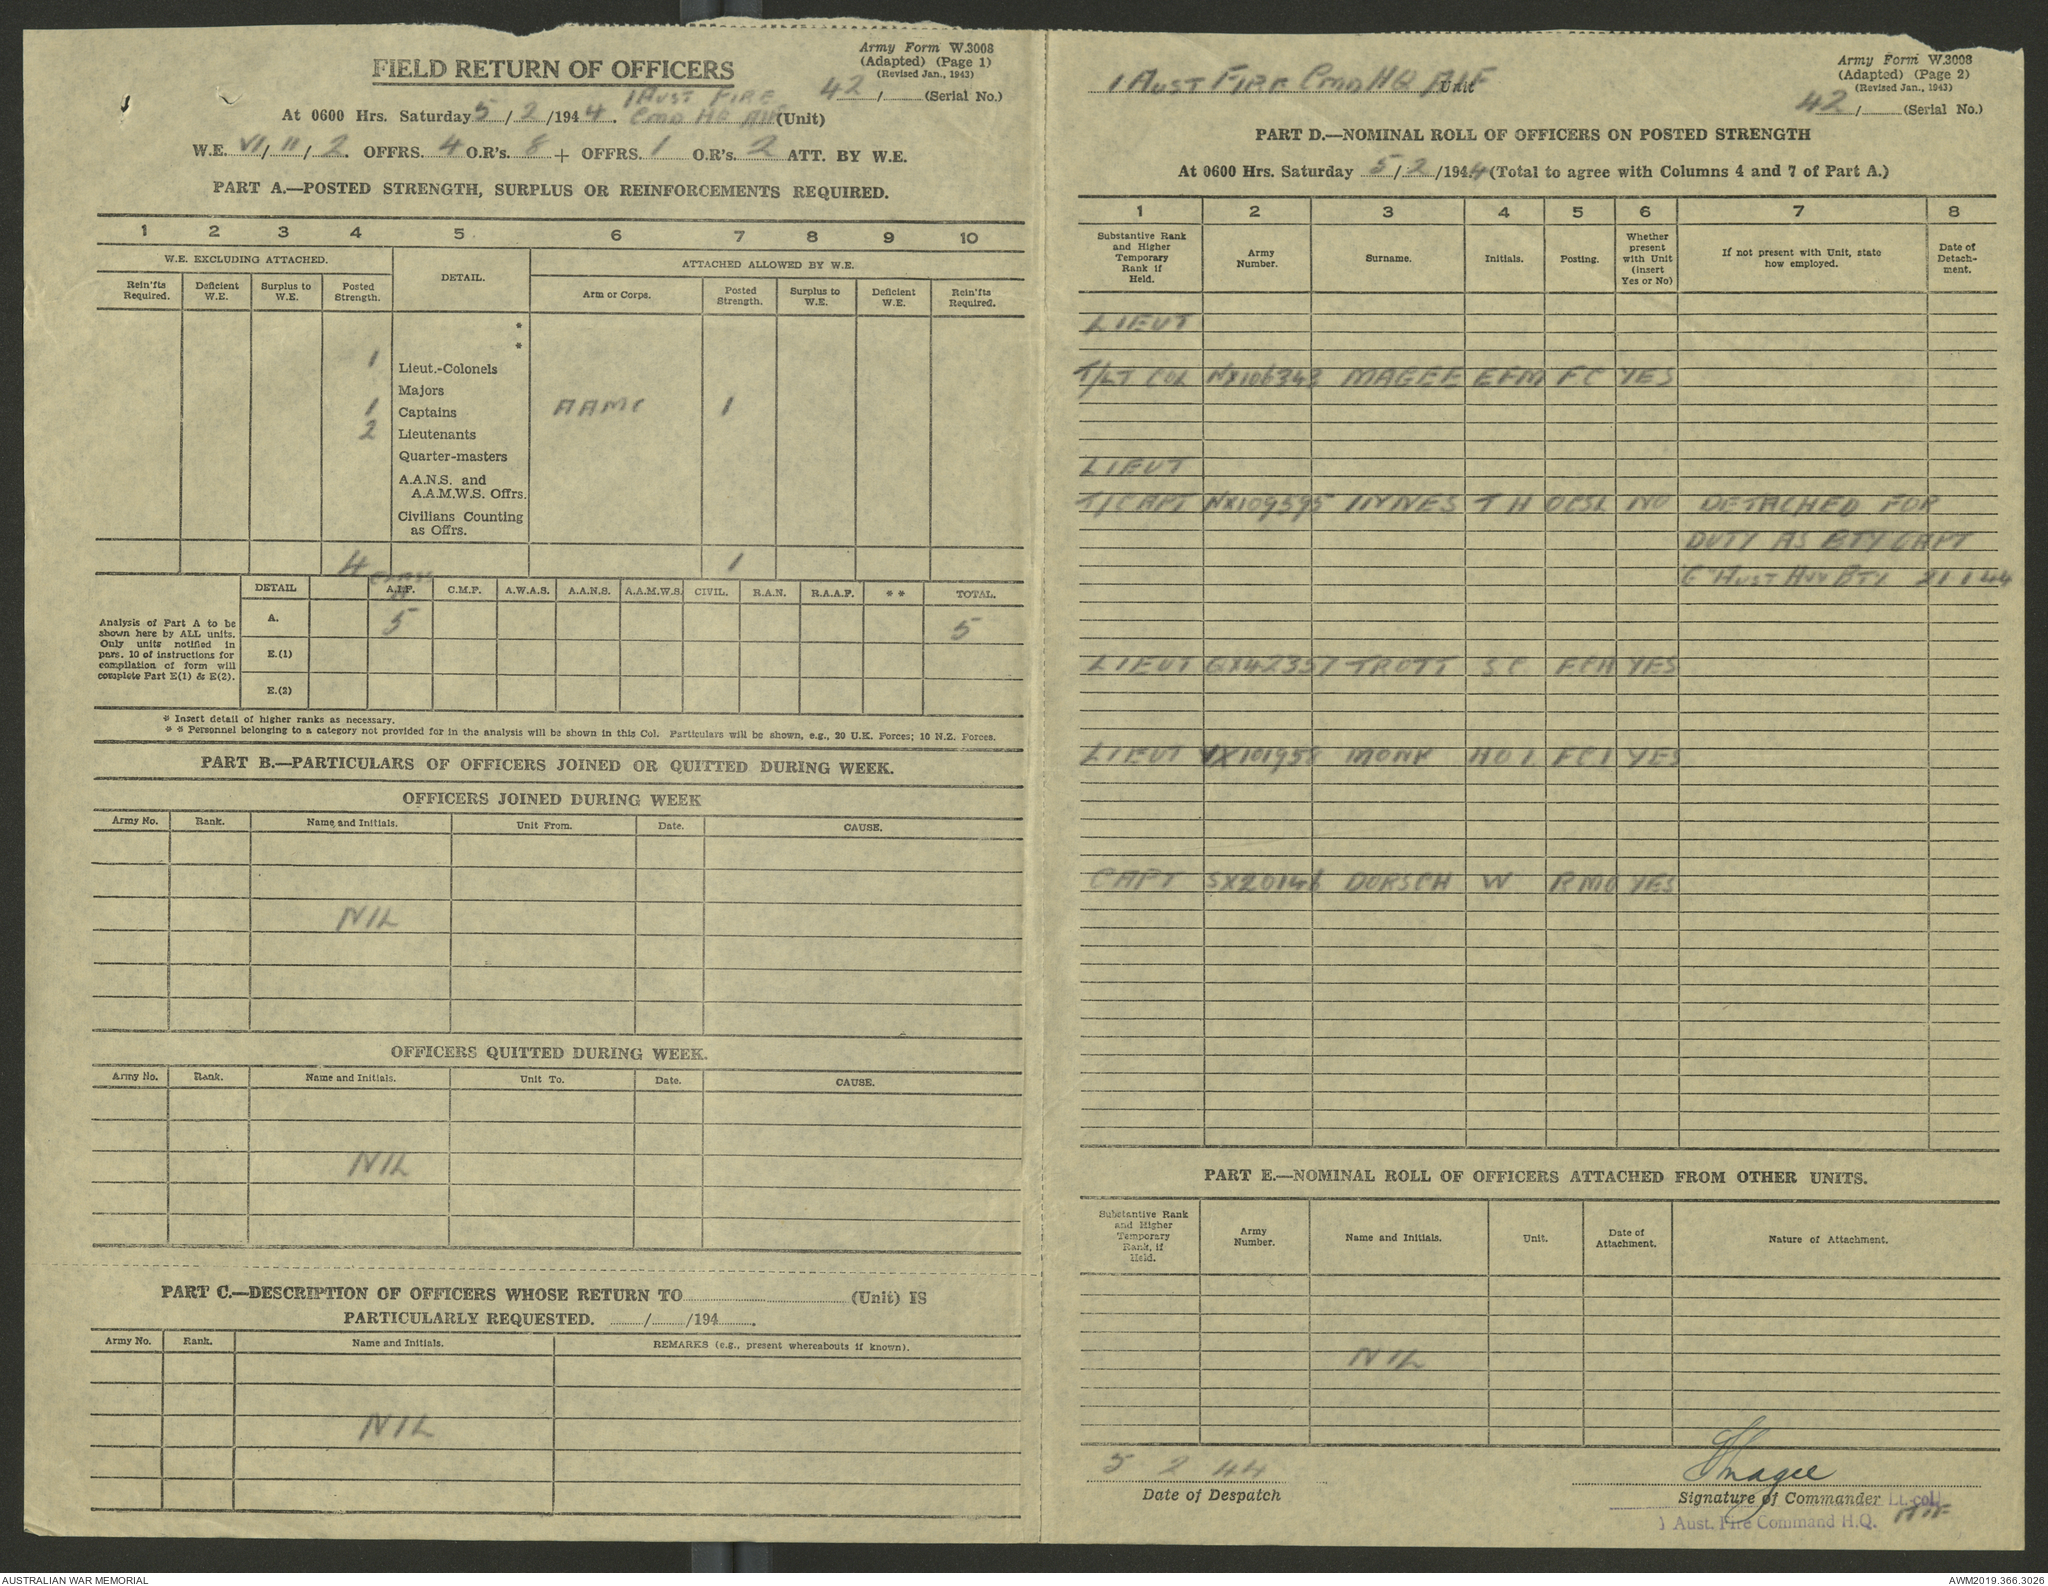 Army Form W.3008
(Adapted) (Page 1)
(Revised Jan., 1943)
FIELD RETURN OF OFFICERS
42 / (Serial No.)
At 0600 Hrs. Saturday 5/2/1944. 1 AUST FIRE CMD HQ AIF (Unit)
W.E. VI/II/2. OFFRS. 4 O.R's. 8 + OFFRS. 1 O.R's. 2 ATT. BY W.E.
PART A.—POSTED STRENGTH, SURPLUS OR REINFORCEMENTS REQUIRED.
1 2 3 4 5 6 7 8 9 10
W.E. EXCLUDING ATTACHED. DETAIL. ATTACHED ALLOWED BY W.E.
Rein'fts Required. Deficient W.E. Surplus to W.E. Posted Strength. Arm or Corps. Posted Strength. Surplus to W.E. Deficient W.E. Rein'fts Required.
*
*
1 Lieut.-Colonels
Majors
1 Captains AAMC 1
2 Lieutenants
Quarter-masters
A.A.N.S. and
A.A.M.W.S. Offrs.
Civilians Counting
as Offrs.
4 1
DETAIL A.I.F. C.M.F. A.W.A.S. A.A.N.S. A.A.M.W.S. CIVIL. R.A.N. R.A.A.F. ** TOTAL.
Analysis of Part A to be
shown here by ALL units.
Only units notified in
pars. 10 of instructions for
compilation of form will
complete Part E(1) & E(2).
A. 5 5
E.(1)
E.(2)
* Insert detail of higher ranks as necessary.
** Personnel belonging to a category not provided for in the analysis will be shown in this Col. Particulars will be shown, e.g., 20 U.K. Forces; 10 N.Z. Forces.
PART B.—PARTICULARS OF OFFICERS JOINED OR QUITTED DURING WEEK.
OFFICERS JOINED DURING WEEK
Army No. Rank. Name and Initials. Unit From. Date. CAUSE.
NIL
OFFICERS QUITTED DURING WEEK.
Army No. Rank. Name and Initials. Unit To. Date. CAUSE.
NIL
PART C.—DESCRIPTION OF OFFICERS WHOSE RETURN TO (Unit) IS
PARTICULARLY REQUESTED. / /194 .
Army No. Rank. Name and Initials. REMARKS (e.g., present whereabouts if known).
NIL
Army Form W.3008
(Adapted) (Page 2)
(Revised Jan., 1943)
1 AUST FIRE CMD HQ AIF Unit
42 / (Serial No.)
PART D.—NOMINAL ROLL OF OFFICERS ON POSTED STRENGTH
At 0600 Hrs. Saturday 5/2/1944 (Total to agree with Columns 4 and 7 of Part A.)
1 2 3 4 5 6 7 8
Substantive Rank and Higher Temporary Rank if Held. Army Number. Surname. Initials. Posting. Whether present with Unit (insert Yes or No) If not present with Unit, state how employed. Date of Detachment.
LIEUT
T/LT COL NX106343 MAGEE EFM FC YES
LIEUT
T/CAPT NX109595 INNES T H OCSL NO DETACHED FOR
DUTY AS BTY CAPT
"C" AUST HVY BTY 21 1 44
LIEUT QX42357 TROTT S C FCH YES
LIEUT VX101958 MONK HO I FCI YES
CAPT SX20146 DORSCH W RMO YES
PART E.—NOMINAL ROLL OF OFFICERS ATTACHED FROM OTHER UNITS.
Substantive Rank and Higher Temporary Rank, if Held. Army Number. Name and Initials. Unit. Date of Attachment. Nature of Attachment.
NIL
5 2 44
Date of Despatch
Magee
Signature of Commander Lt. col.
1 Aust. Fire Command H.Q. AIF
AUSTRALIAN WAR MEMORIAL
AWM2019.366.3026